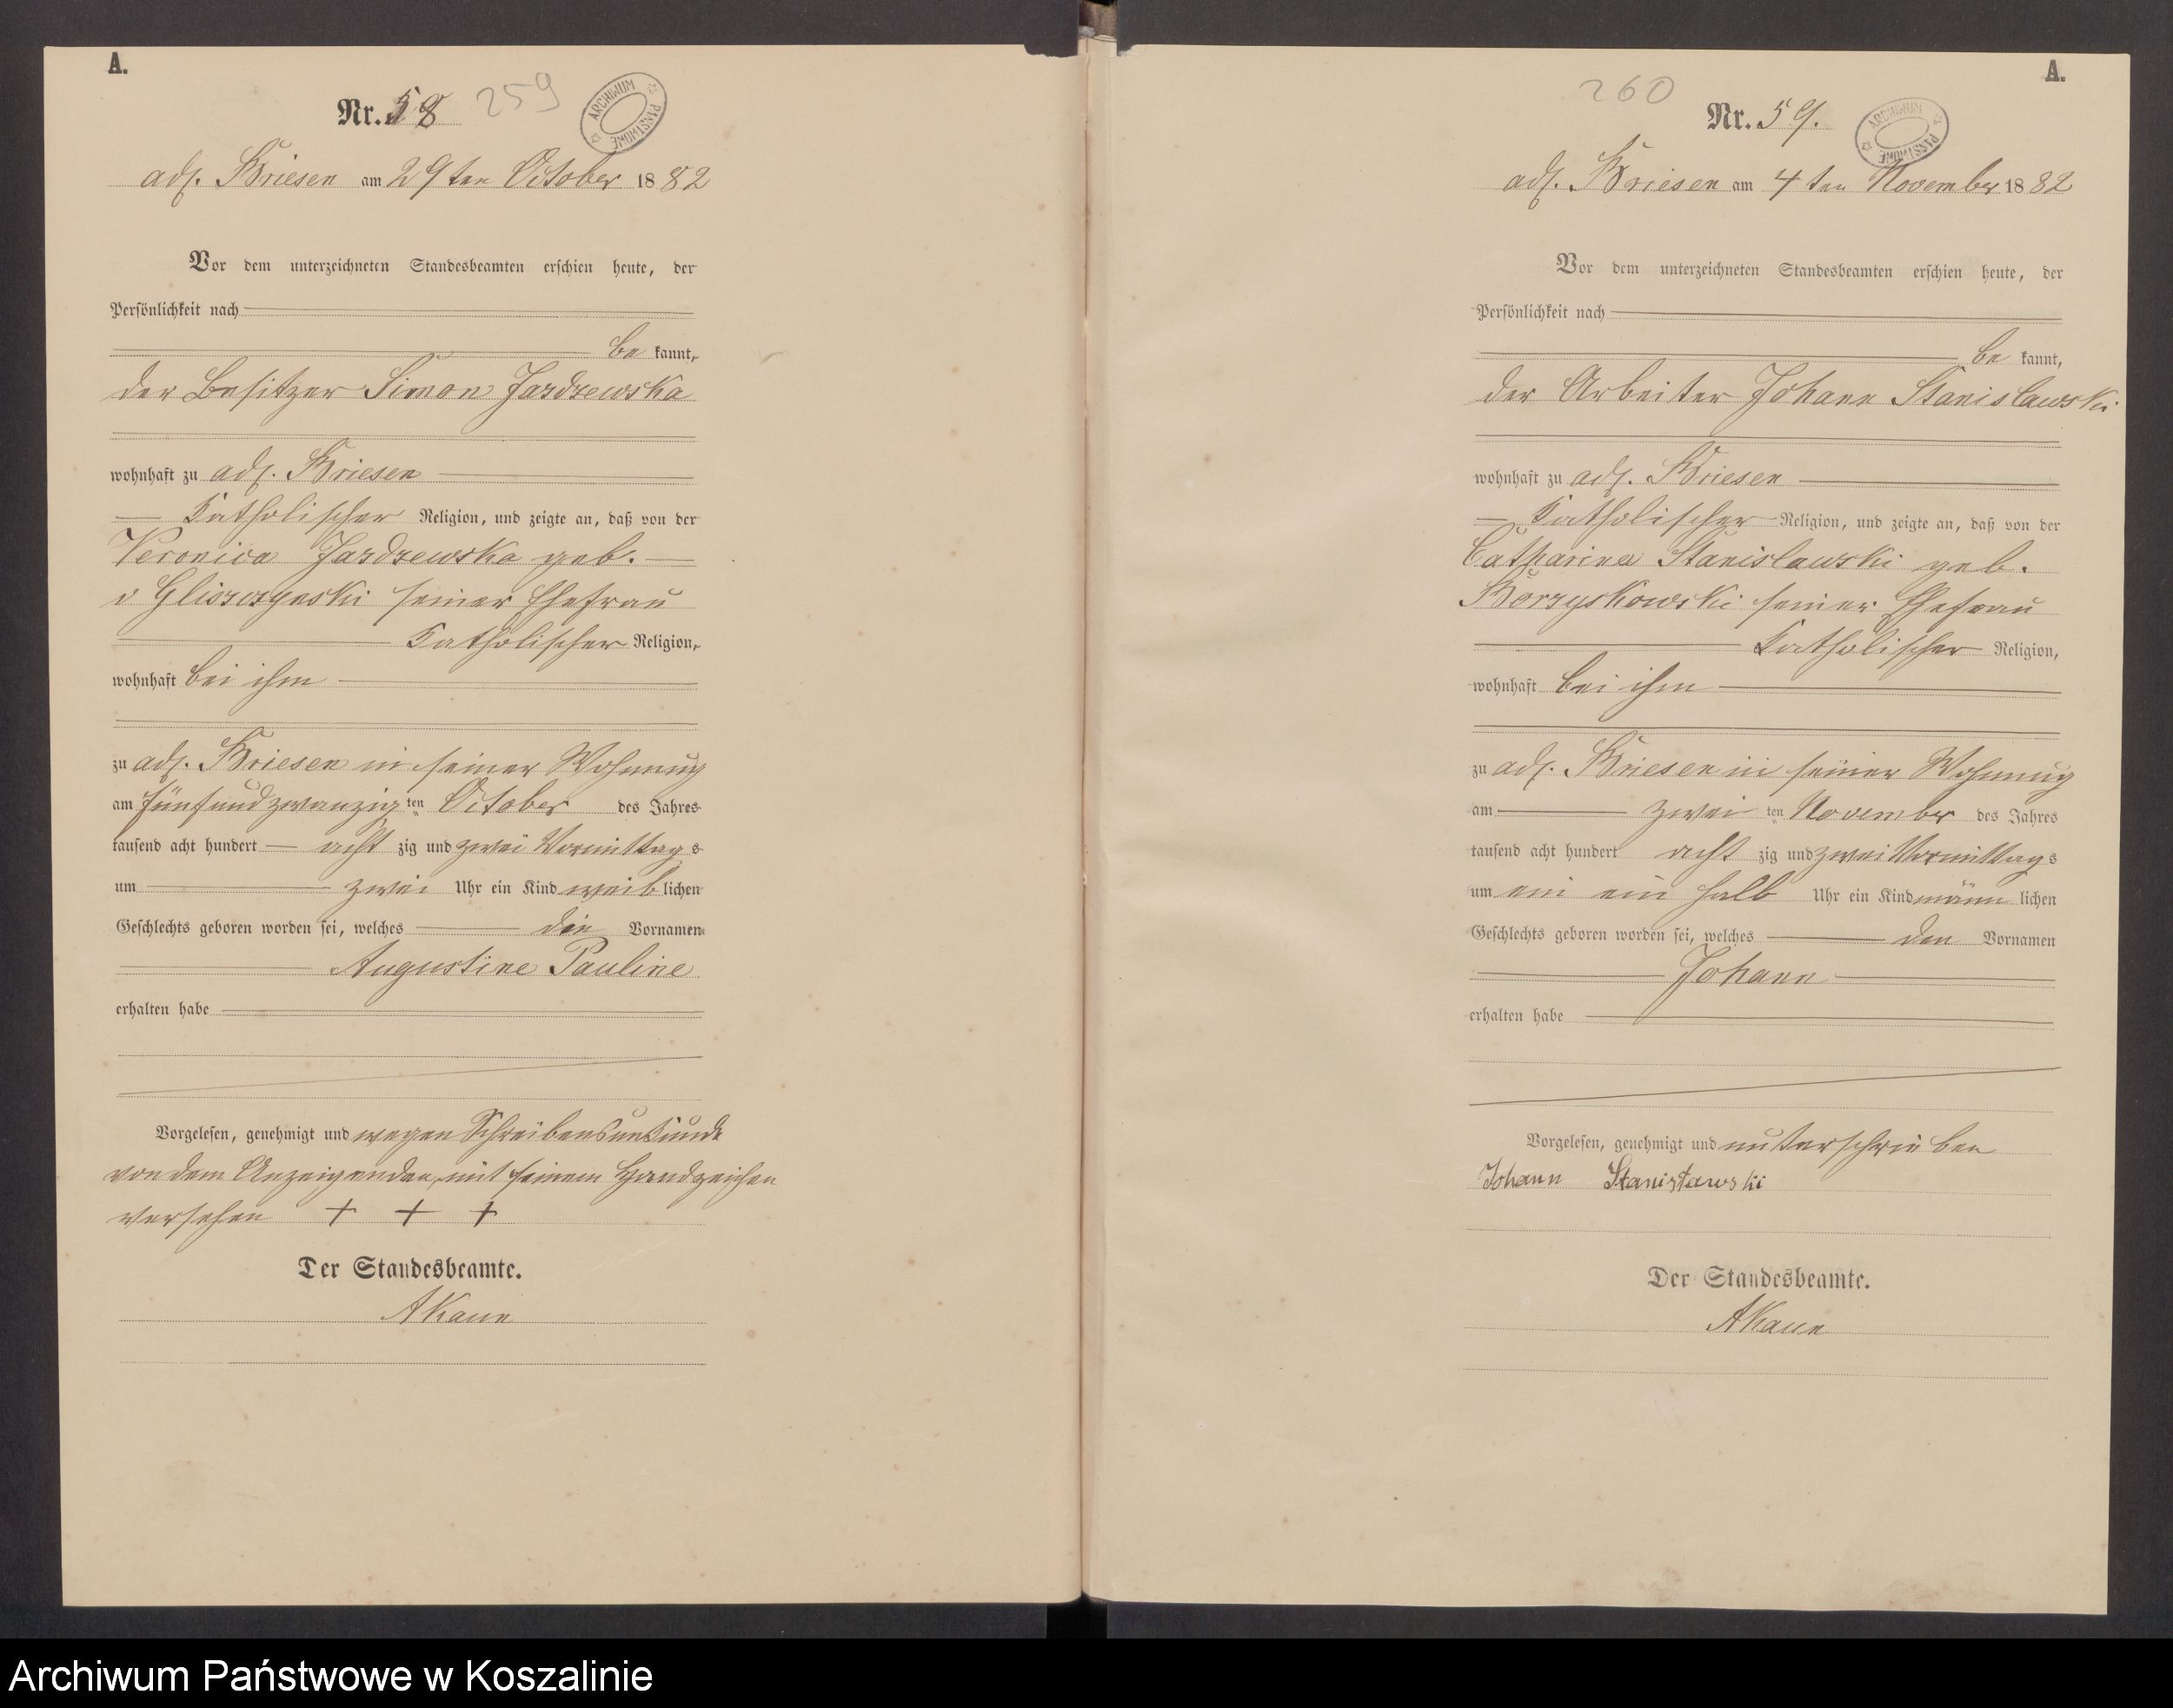 A.
Nr. 58 259
ARCHIWUM PAŃSTWOWE
adl. Briesen am 29ten October 1882
Vor dem unterzeichneten Standesbeamten erschien heute, der
Persönlichkeit nach
be kannt,
der Besitzer Simon Jazdzewska
wohnhaft zu adl. Briesen
katholischer Religion, und zeigte an, daß von der
Veronica Jazdzewska geb.
v Gliszczynski seiner Ehefrau
katholischer Religion,
wohnhaft bei ihm
zu adl. Briesen in seiner Wohnung
am fünfundzwanzig ten October des Jahres
tausend acht hundert acht zig und zwei Vormittags
um zwei Uhr ein Kind weib lichen
Geschlechts geboren worden sei, welches die Vornamen
Augustine Pauline
erhalten habe
Vorgelesen, genehmigt und wegen Schreibensunkunde
von dem Anzeigenden mit seinem Handzeichen
versehen + + +
Der Standesbeamte.
AKaun
260
A.
Nr. 59.
ARCHIWUM PAŃSTWOWE
adl. Briesen am 4ten November 1882
Vor dem unterzeichneten Standesbeamten erschien heute, der
Persönlichkeit nach
be kannt,
der Arbeiter Johann Stanislawski
wohnhaft zu adl. Briesen
katholischer Religion, und zeigte an, daß von der
Catharina Stanislawski geb.
Borzyskowski seiner Ehefrau
katholischer Religion,
wohnhaft bei ihm
zu adl. Briesen in seiner Wohnung
am zwei ten November des Jahres
tausend acht hundert acht zig und zwei Vormittags
um ein ein halb Uhr ein Kind männ lichen
Geschlechts geboren worden sei, welches den Vornamen
Johann
erhalten habe
Vorgelesen, genehmigt und unterschrieben
Johann Stanisławski
Der Standesbeamte.
AKaun
Archiwum Państwowe w Koszalinie